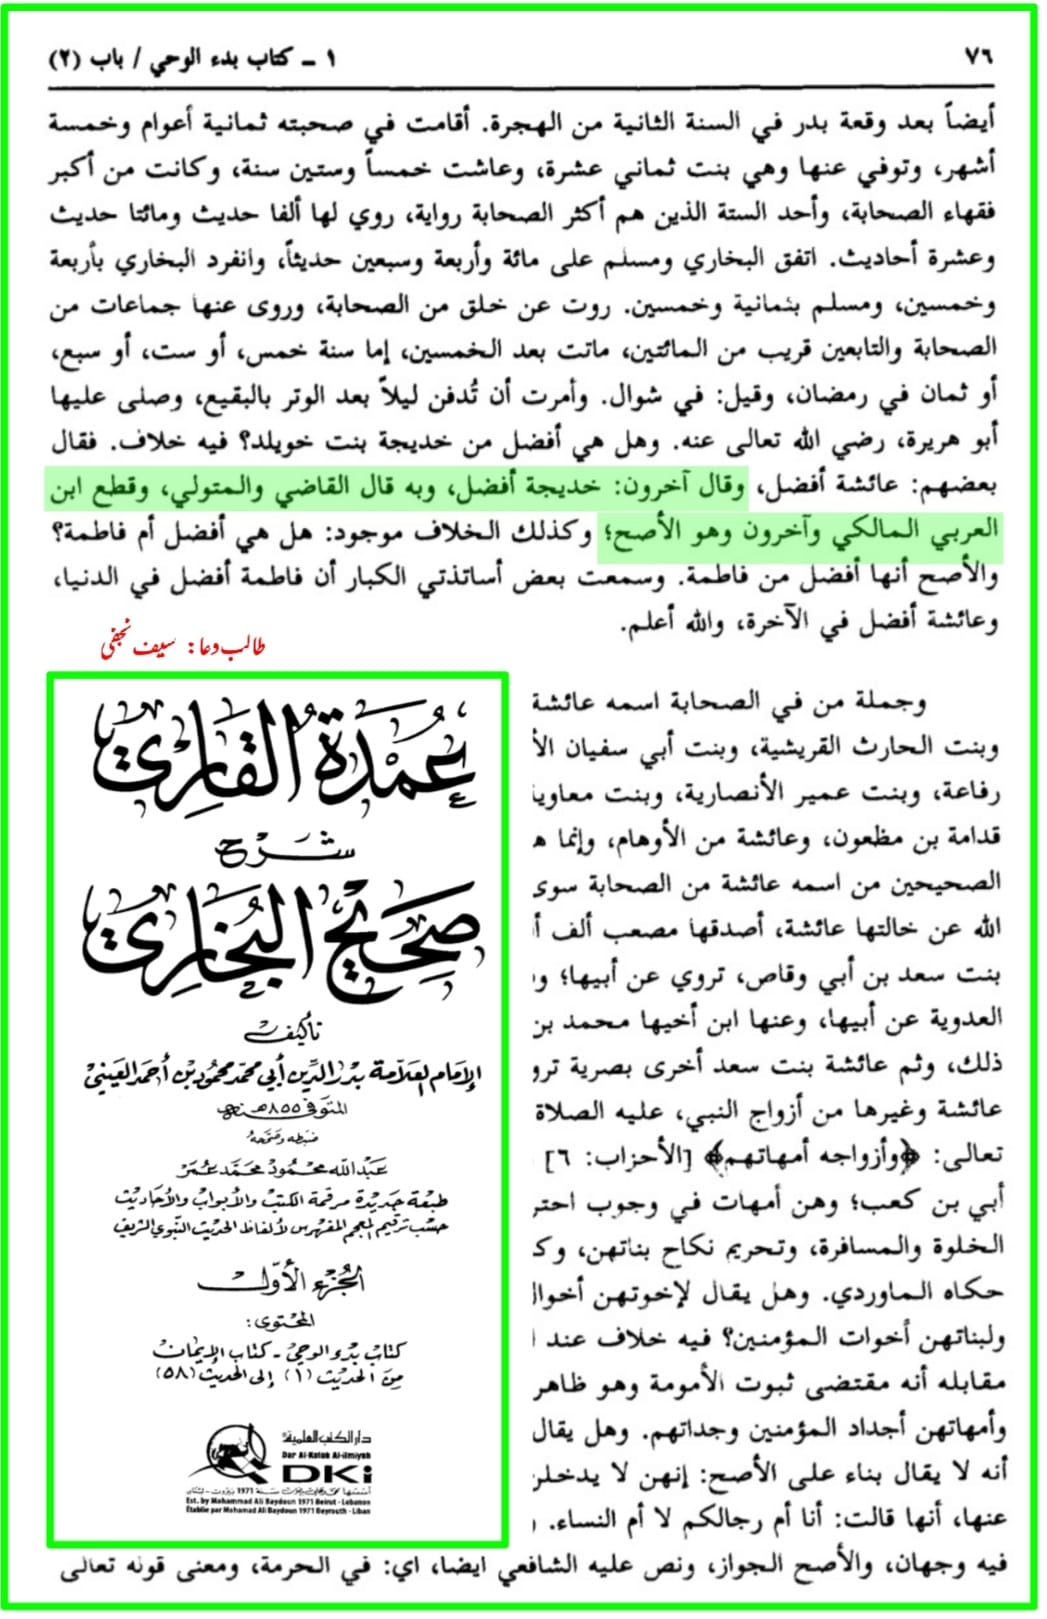 ٧٦
١ - كتاب بدء الوحي / باب (٢)
أيضاً بعد وقعة بدر في السنة الثانية من الهجرة. أقامت في صحبته ثمانية أعوام وخمسة
أشهر، وتوفي عنها وهي بنت ثماني عشرة، وعاشت خمساً وستين سنة، وكانت من أكبر
فقهاء الصحابة، وأحد الستة الذين هم أكثر الصحابة رواية، روي لها ألفا حديث ومائتا حديث
وعشرة أحاديث. اتفق البخاري ومسلم على مائة وأربعة وسبعين حديثاً، وانفرد البخاري بأربعة
وخمسين، ومسلم بثمانية وخمسين. روت عن خلق من الصحابة، وروى عنها جماعات من
الصحابة والتابعين قريب من المائتين، ماتت بعد الخمسين، إما سنة خمس، أو ست، أو سبع،
أو ثمان في رمضان، وقيل: في شوال. وأمرت أن تُدفن ليلاً بعد الوتر بالبقيع، وصلى عليها
أبو هريرة، رضي الله تعالى عنه. وهل هي أفضل من خديجة بنت خويلد؟ فيه خلاف. فقال
بعضهم: عائشة أفضل، وقال آخرون: خديجة أفضل، وبه قال القاضي والمتولي، وقطع ابن
العربي المالكي وآخرون وهو الأصح؛ وكذلك الخلاف موجود: هل هي أفضل أم فاطمة؟
والأصح أنها أفضل من فاطمة. وسمعت بعض أساتذتي الكبار أن فاطمة أفضل في الدنيا،
وعائشة أفضل في الآخرة، والله أعلم.
طالب دعا: سیف نجفی
وجملة من في الصحابة اسمه عائشة
وبنت الحارث القريشية، وبنت أبي سفيان الأ
رفاعة، وبنت عمير الأنصارية، وبنت معاوية
قدامة بن مظعون، وعائشة من الأوهام، وإنما ه
الصحيحين من اسمه عائشة من الصحابة سوى
الله عن خالتها عائشة، أصدقها مصعب ألف أ
بنت سعد بن أبي وقاص، تروي عن أبيها؛ و
العدوية عن أبيها، وعنها ابن أخيها محمد بن
ذلك، وثم عائشة بنت سعد أخرى بصرية ترو
عائشة وغيرها من أزواج النبي، عليه الصلاة
تعالى: ﴿وأزواجه أمهاتهم﴾ [الأحزاب: ٦]
أبي بن كعب؛ وهن أمهات في وجوب احتر
الخلوة والمسافرة، وتحريم نكاح بناتهن، وك
حكاه الماوردي. وهل يقال لإخوتهن أخوال
ولبناتهن أخوات المؤمنين؟ فيه خلاف عند ا
مقابله أنه مقتضى ثبوت الأمومة وهو ظاهر
وأمهاتهن أجداد المؤمنين وجداتهم. وهل يقال
أنه لا يقال بناء على الأصح: إنهن لا يدخلن
عنها، أنها قالت: أنا أم رجالكم لا أم النساء.
فيه وجهان، والأصح الجواز، ونص عليه الشافعي ايضا، اي: في الحرمة، ومعنى قوله تعالى
عُمْدَةُ القَارِي
شرح
صَحِيحُ البُخَارِي
تأليف
الإمام العلامة بدر الدين أبي محمد محمود بن أحمد العيني
المتوفى ٨٥٥ هـ سنة
ضبطه وصححه
عبد الله محمود محمد عمر
طبعة جديدة مرقمة الكتب والأبواب والأحاديث
حسب ترقيم المعجم المفهرس لألفاظ الحديث النبوي الشريف
الجزء الأول
المحتوى:
كتاب بدء الوحي - كتاب الإيمان
من الحديث (١) إلى الحديث (٥٨)
دار الكتب العلمية
Dar Al-Kotob Al-ilmiyah
DKi
أسسها محمد علي بيضون سنة 1971 بيروت - لبنان
Est. by Mohammad Ali Baydoun 1971 Beirut - Lebanon
Établie par Mohamad Ali Baydoun 1971 Beyrouth - Liban